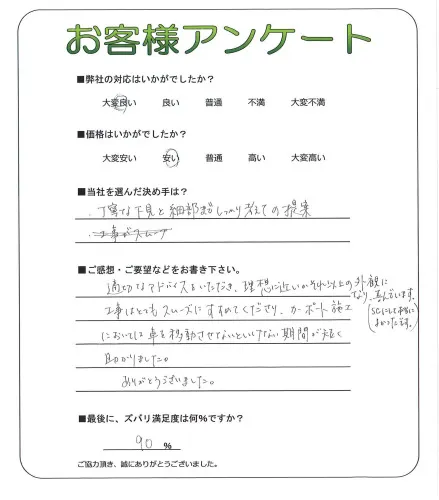 お客様アンケート
■弊社の対応はいかがでしたか？
大変良い 良い 普通 不満 大変不満
■価格はいかがでしたか？
大変安い 安い 普通 高い 大変高い
■当社を選んだ決め手は？
・丁寧な下見と細部までしっかり考えての提案
・工事がスムーズ
■ご感想・ご要望などをお書き下さい。
適切なアドバイスをいただき、理想に近いかそれ以上の外観に
なり、喜んでいます。
工事はとてもスムーズにすすめてくださり、カーポート施工
においては車を移動させないといけない期間が短く
助かりました。
ありがとうございました。
(SCにして本当に
よかったです。)
■最後に、ズバリ満足度は何%ですか？
90 %
ご協力頂き、誠にありがとうございました。